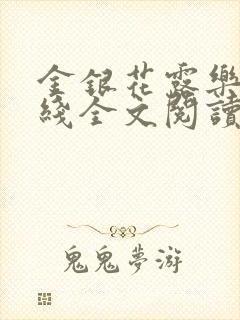 金銀花露樂
綫全文閱讀
鬼鬼夢游